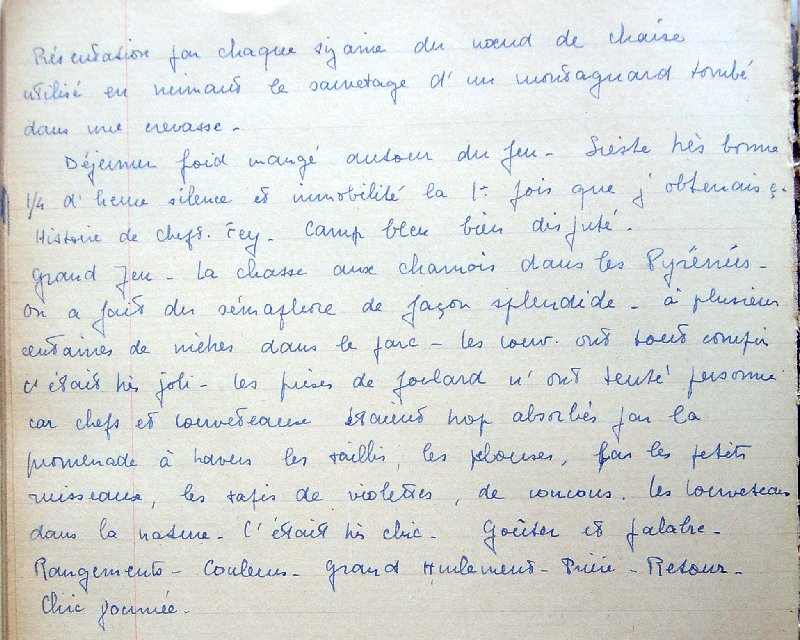 Présentation par chaque sizaine du nœud de chaise
utilisé en mimant le sauvetage d'un montagnard tombé
dans une crevasse -
Déjeuner froid mangé autour du feu - Sieste très bonne
1/4 d'heure silence et immobilité la 1e fois que j'obtenais ç.
Histoire de chefs. Fey - Camp bleu bien disputé.
Grand Jeu - La chasse aux chamois dans les Pyrénées -
On a fait du sémaphore de façon splendide - à plusieurs
centaines de mètres dans le parc - les louv. ont tout compris
c'était très joli - les prises de foulard n'ont tenté personne
car chefs et louveteaux étaient trop absorbés par la
promenade à travers les taillis, les pelouses, par les petits
ruisseaux, les tapis de violettes, de coucous. les louveteaux
dans la nature - C'était très chic - Goûter et palabre -
Rangements - Couleurs - Grand Hurlement - Prière - Retour -
Chic journée -